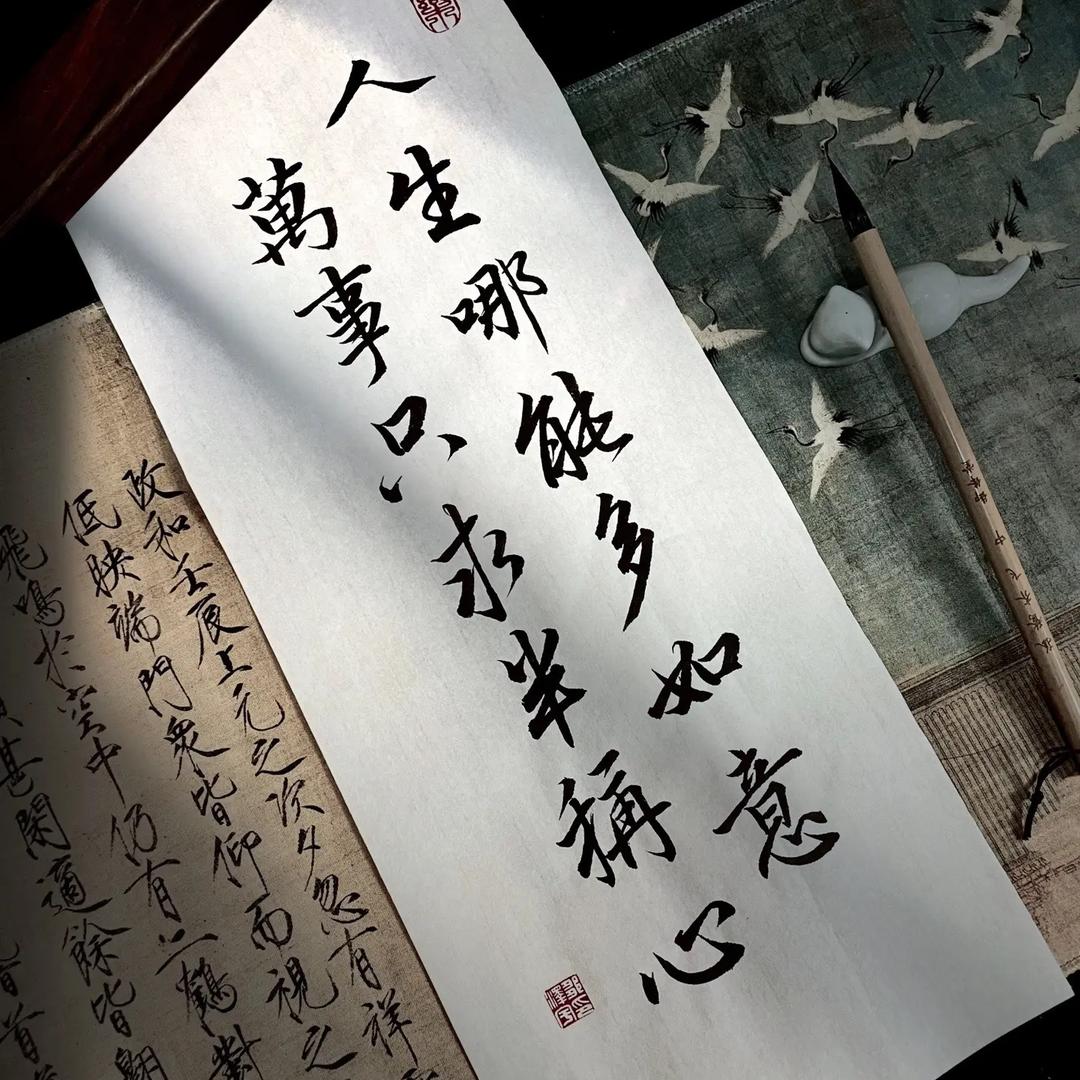 人生哪能多如意
萬事只求半稱心
政和壬辰上元之次夕忽有祥
低映端門眾皆仰而視之
飛鳴於空中仍有二鶴對
甚閑適餘皆翱
首